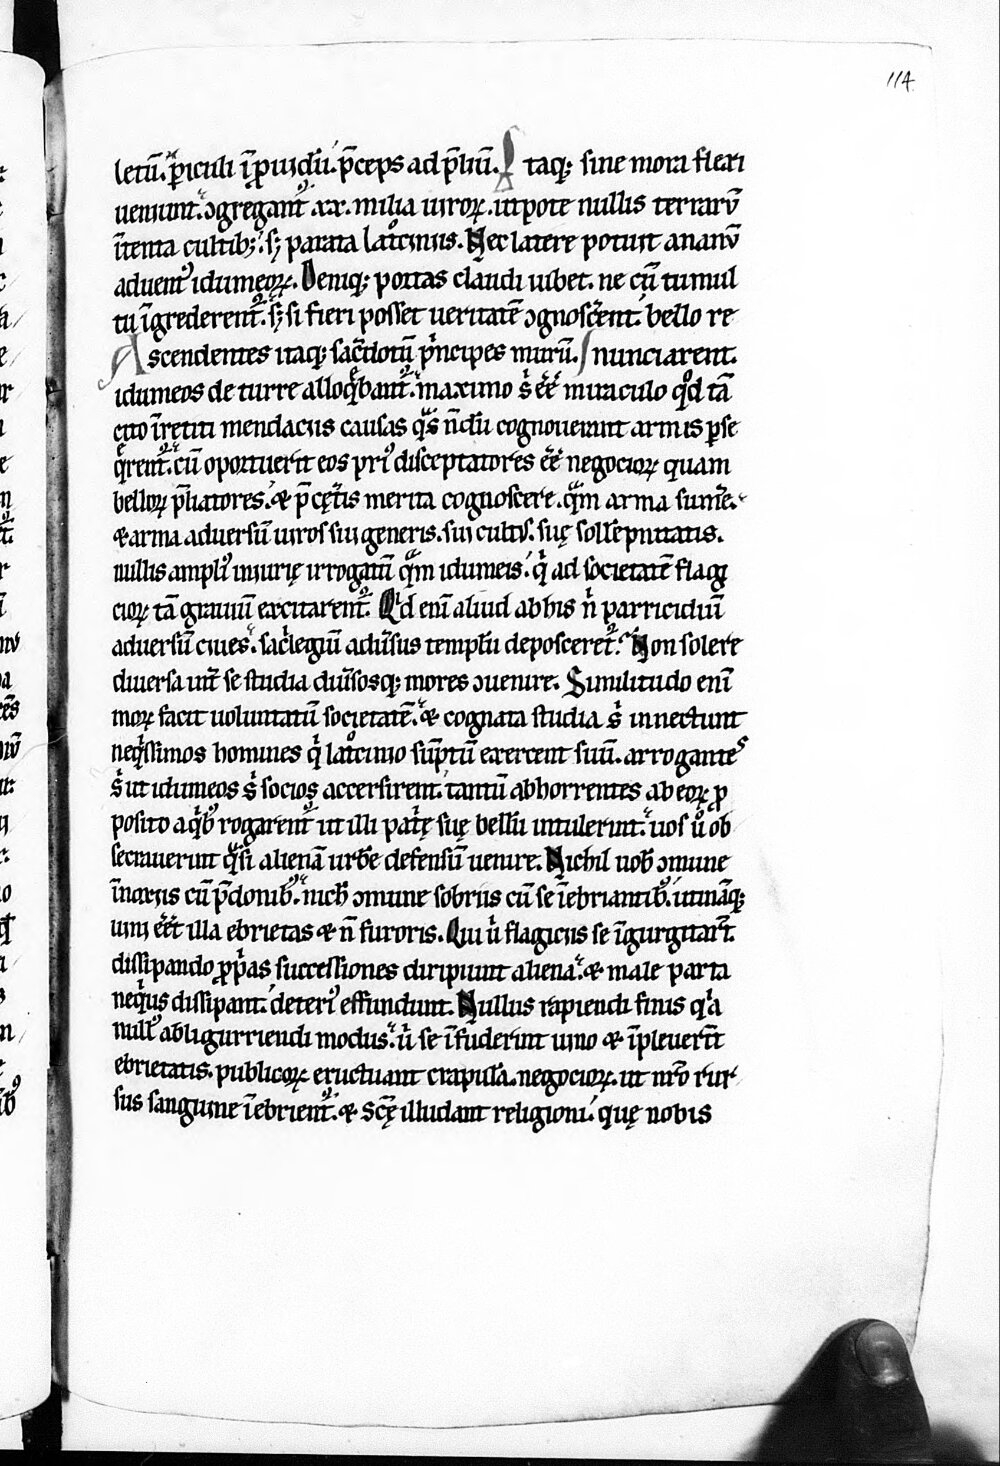 114
letū. ꝑiculi īꝓuidū. p̄ceps ad p̄liū. Itaq; sine mora flexi
ueniunt. ↄgregant᷑ .xx. milia uiroꝝ. utpote nullis terrarū
ītenta cultib;. sꝫ parata lat°ciniis. Nec latere potuit ananū
aduentꝰ idumeoꝝ. Deniq; portas claudi iubet. ne cū tumul
tu īgrederent᷑. sꝫ si fieri posset ueritatē ↄgnosc̄ent. bello re
Ascendentes itaq; sac̄dotū pⁱncipes murū. nunciarent.
idumeos de turre alloq̄bant᷑. maximo s̄ ēē miraculo qd̄ tā
cito īretiti mendaciis causas qᵃs n̄dū cognouerunt armis ꝑse
q̄rent᷑. cū oportuerit eos priꝰ disceptatores ēē negocioꝝ quam
belloꝝ p̄liatores. & p̄ cęt̄is merita cognoscere. qᵃm arma sum̄e.
& arma aduersū uiros sui generis. sui cultꝰ. suę soll̄epnitatis.
nullis ampliꝰ iniurię irrogatū qᵃm idumeis. qⁱ ad societatē flagi
cioꝝ tā grauiū excitarent᷑. Qⁱd enī aliud ab his n̄ parricidiū
aduersū ciues. sacⁱlegiū adūsus templū deposceret᷑. Non solere
diuersa int̄ se studia dūsosq; mores ↄuenire. Similitudo enī
moꝝ facit uoluntatū societatē. & cognata studia s̄ innectunt
neqⁱssimos homines qⁱ lat°cinio sūptū exercent suū. arrogantes
s̄ ut idumeos s̄ socios accersirent. tantū abhorrentes ab eoꝝ ꝓ
posito a qⁱbꝰ rogarent᷑ ut illi pat̄ę suę bellū intulerint. uos u° ob
secrauerint qᵃsi alienā urbē defensū uenire. Nichil uob̄ ↄmune
īnoxiis cū p̄donibꝰ. nich̄ ↄmune sobriis cū se īebriantibꝰ. utināq;
uini ēēt illa ebrietas & n̄ furoris. Qui ū flagiciis se īgurgitar̄t.
dissipando ꝓpⁱas successiones diripiunt aliena. & male parta
neqⁱus dissipant. deteriꝰ effundunt. Nullus rapiendi finis qⁱa
nullꝰ abligurriendi modus. ū se īfuderint uino & īpleuer̄t
ebrietatis. publicoꝝ eructuant crapula. negocioꝝ. ut nr̄o rur
sus sanguine īebrient᷑. & sc̄ę illudant religioni quę nobis